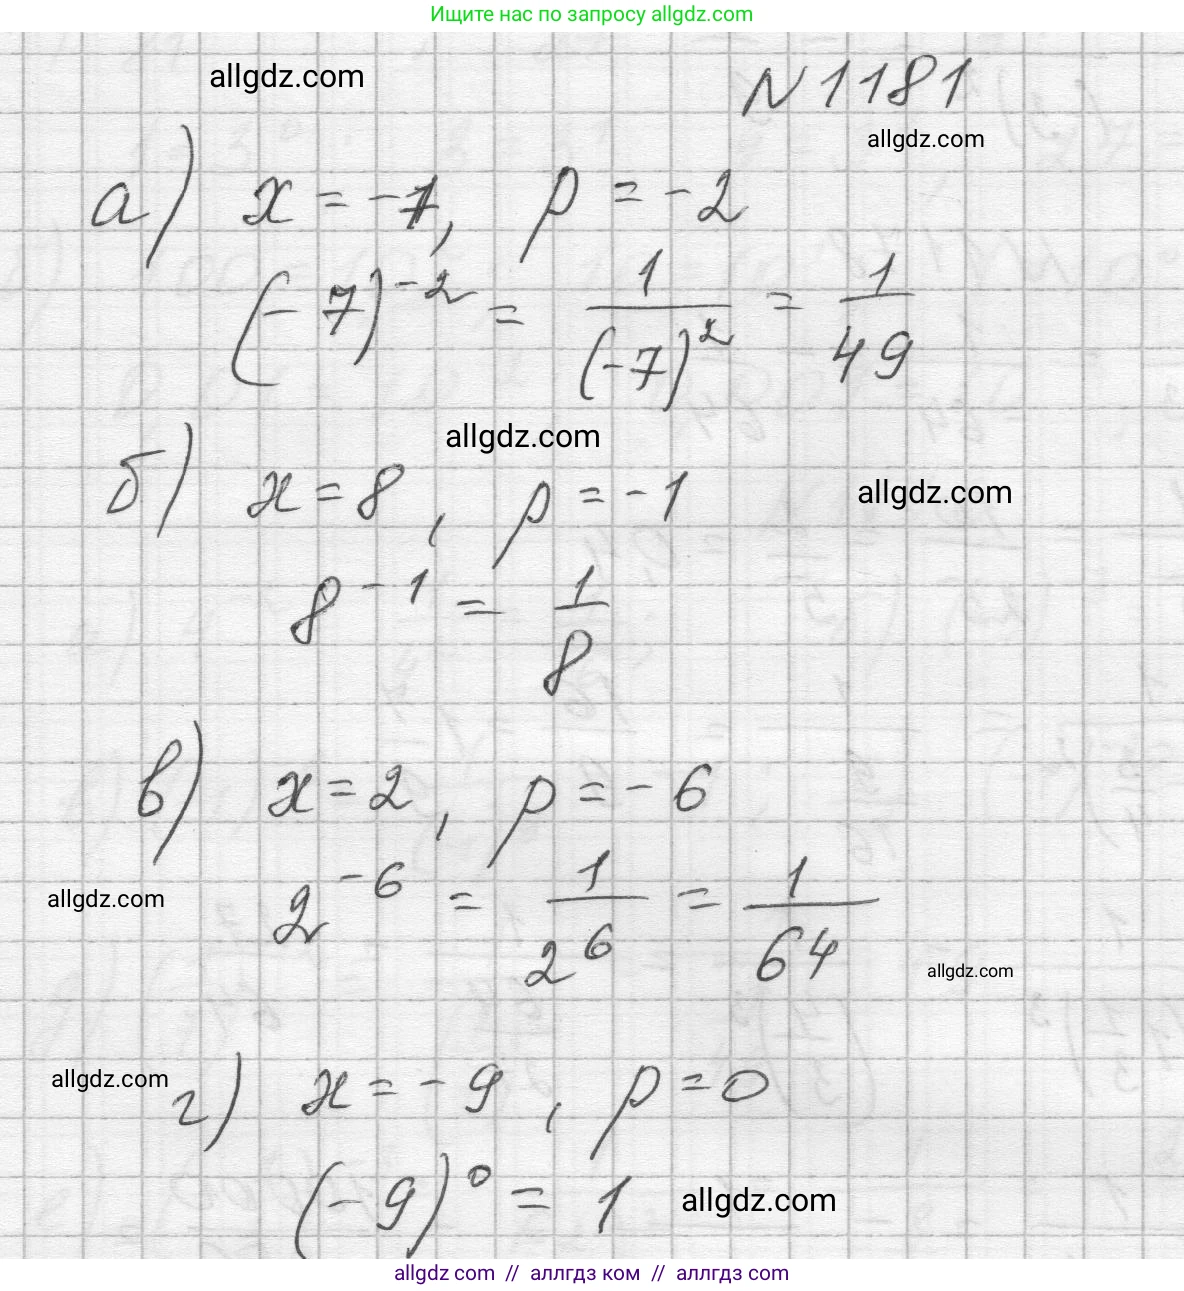 Ищите нас по запросу allgdz.com
allgdz.com
N 1181
allgdz.com
а) x = -7, p = -2
(-7)^-2 = 1/(-7)^2 = 1/49
allgdz.com
б) x = 8, p = -1
allgdz.com
8^-1 = 1/8
в) x = 2, p = -6
2^-6 = 1/2^6 = 1/64
allgdz.com
allgdz.com
allgdz.com
г) x = -9, p = 0
(-9)^0 = 1
allgdz.com
allgdz com // аллгдз ком // аллгдз com